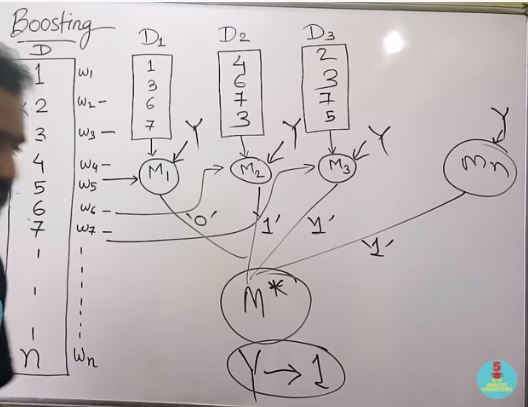 Boosting
D
1 w1
2 w2 -
3 w3 -
4 w4 -
5 w5
6 w6 -
7 w7 -
n wn
D1
1
3
6
7
D2
4
6
7
3
D3
2
3
7
5
Y
Y
Y
Y
M1
M2
M3
Mn
'0'
'1'
'1'
'1'
M*
Y → 1
5
MINUTES
ENGINEERING